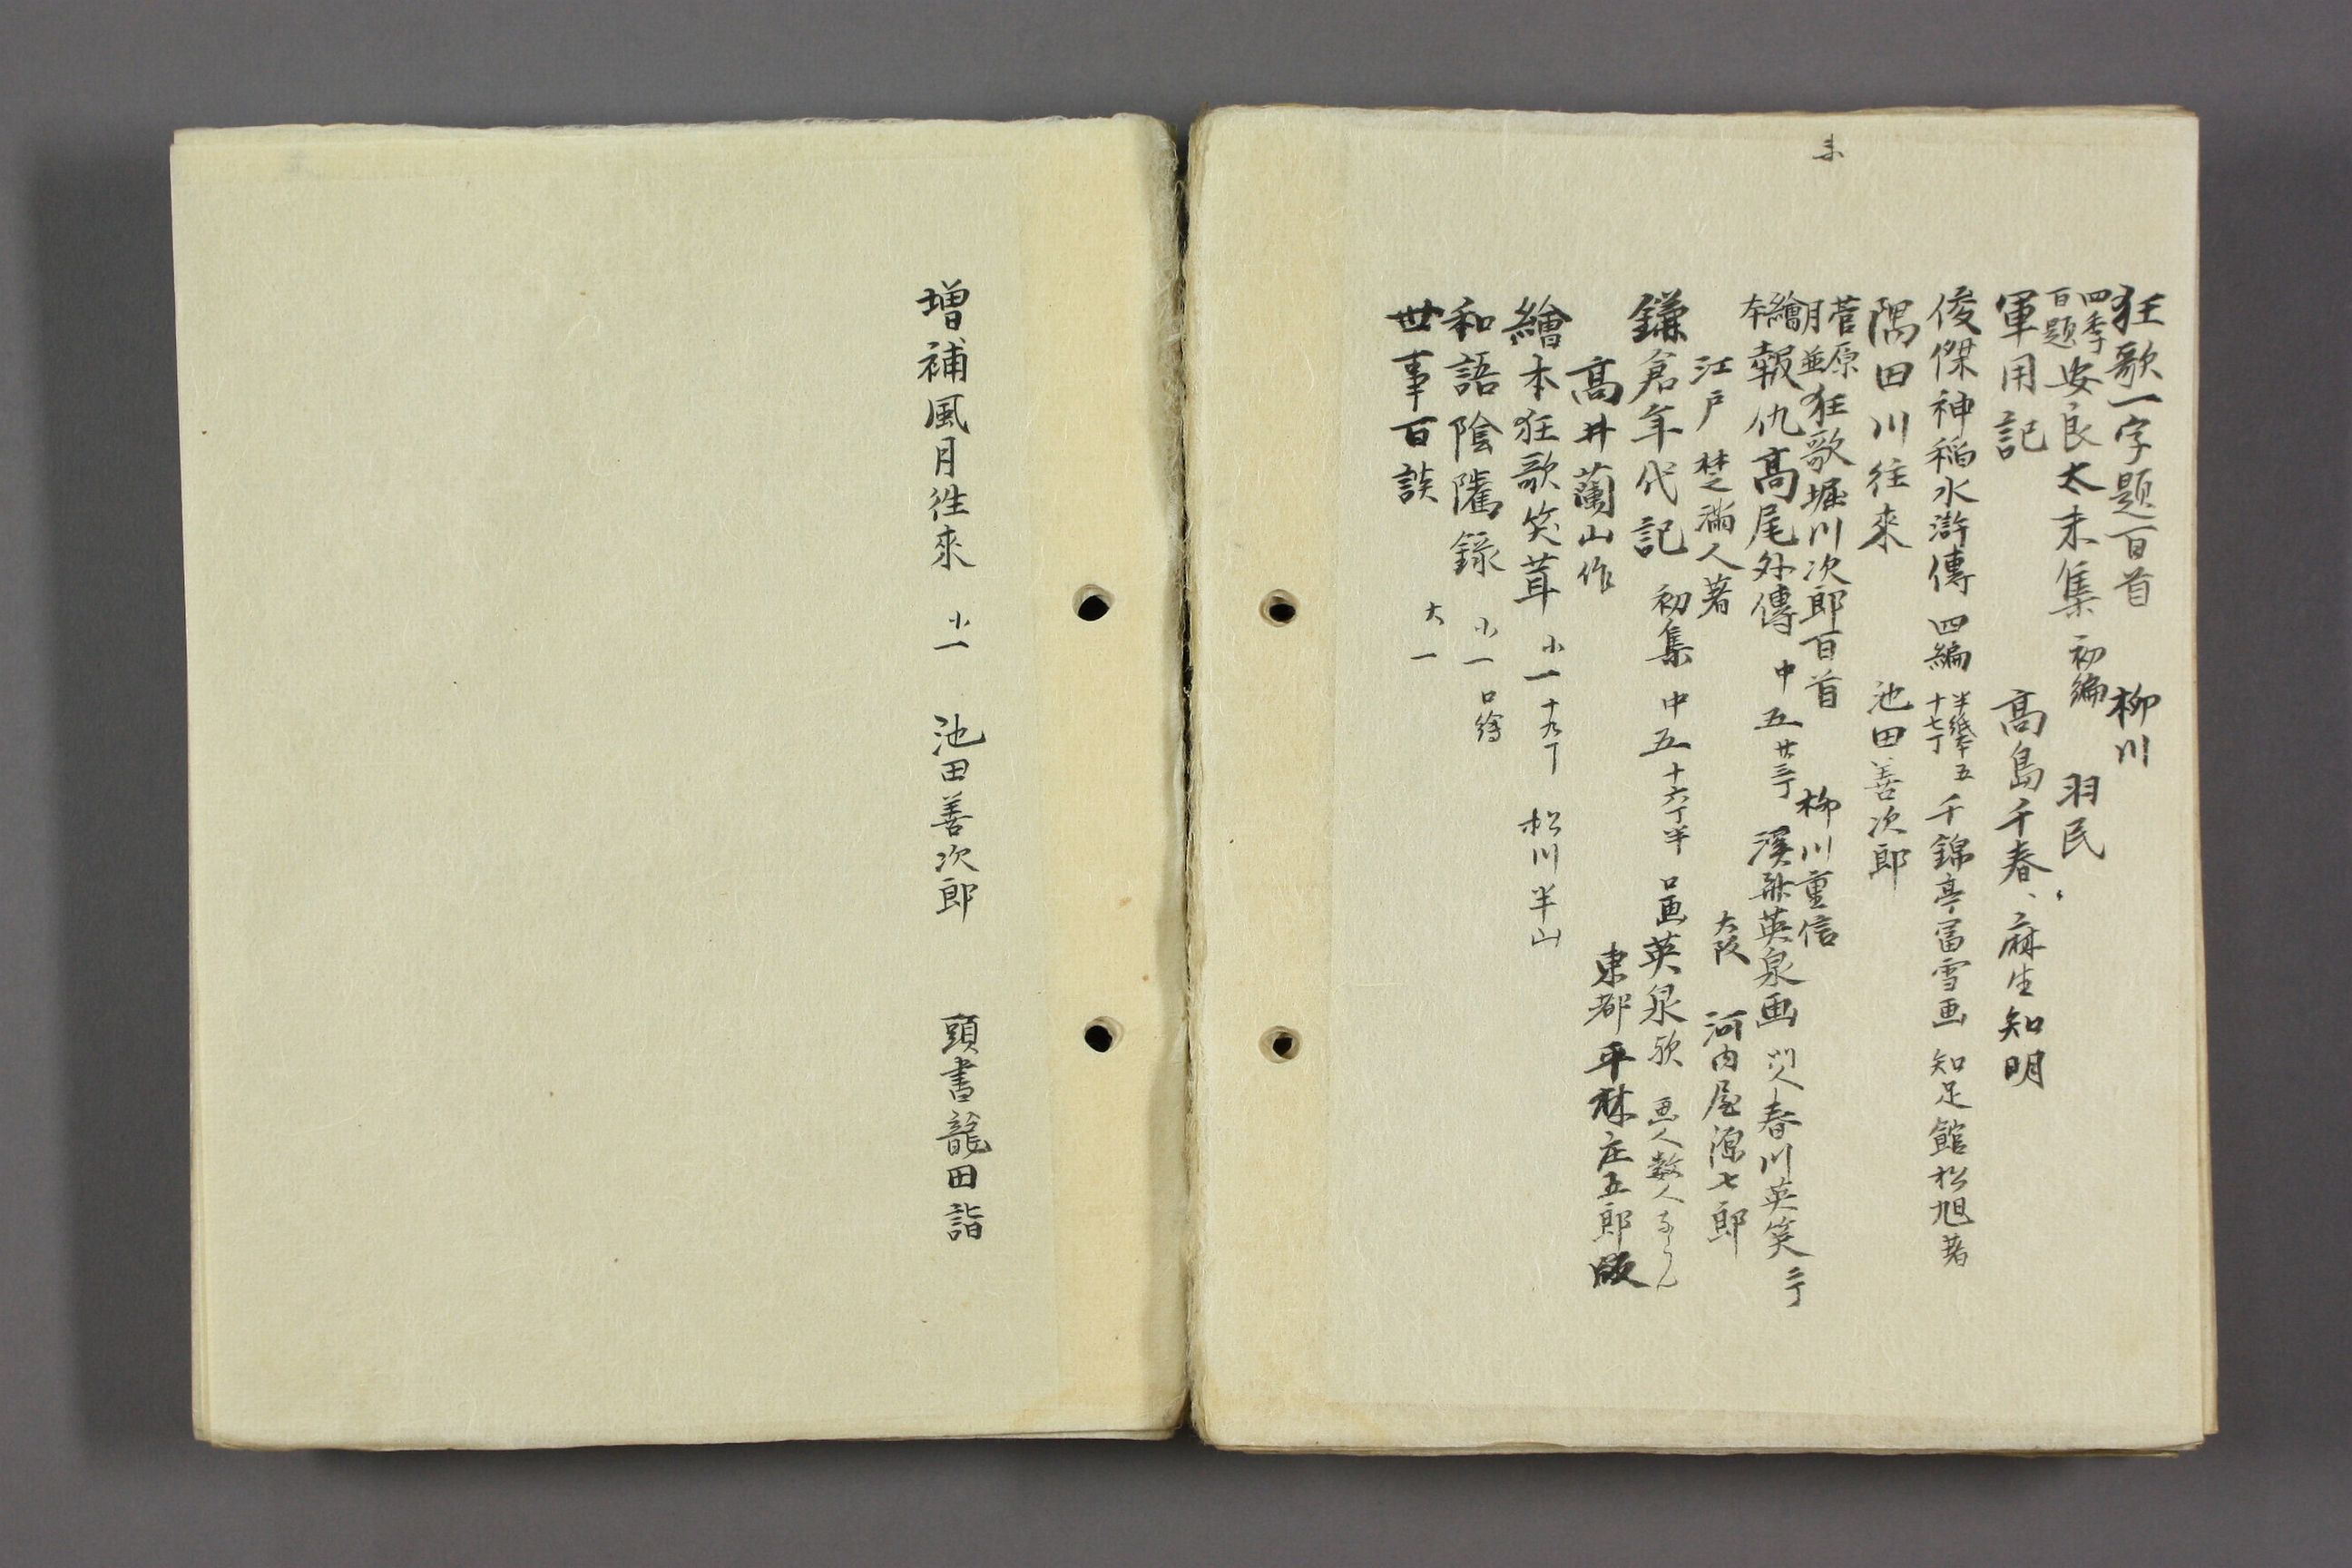 未
狂歌一字題百首 柳川
四季百題 安良太未集 初編 羽民
軍用記 高島千春、麻生知明
俊傑神稲水滸傳 四編 半紙本五 十七丁 千錦亭富雪画 知足館松旭著
隅田川往來 池田善次郎
菅原月並 狂歌堀川次郎百首 柳川重信
繪本 報仇高尾外傳 中五 廿三丁 溪斎英泉画 門人春川英笑 二丁
江戸 楚満人著 大阪 河内屋源七郎
鎌倉年代記 初集 中五 十六丁半 口画英泉歟 画人数人ならん
高井蘭山作 東都 平林庄五郎版
繪本狂歌笑茸 小一 十九丁 松川半山
和語陰隲録 小一 口繪
世事百談 大一
増補風月徃來 小一 池田善次郎 頭書龍田詣